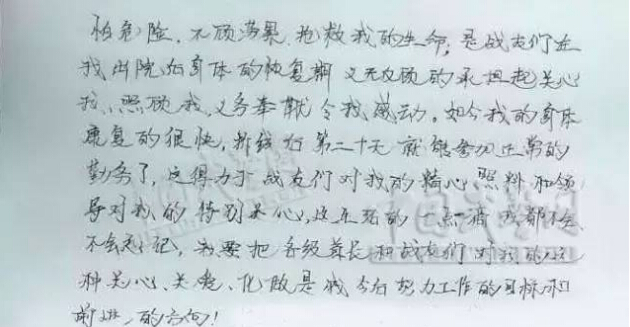 怕危险、不顾满累 抢救我的生命；是战友们在
我出院后身体的恢复期 又无反顾的承担起关心
我、照顾我，义务奉献令我感动。如今我的身体
康复的很快，拆线后第二十天就能参加正常的
勤务了，这得力于战友们对我的精心照料和领
导对我的特别关心，这点滴的一点滴我都不会
不会忘记，我要把各级首长和战友们对我的这
种关心、关爱、化做是我今后努力工作的目标和
前进的方向！